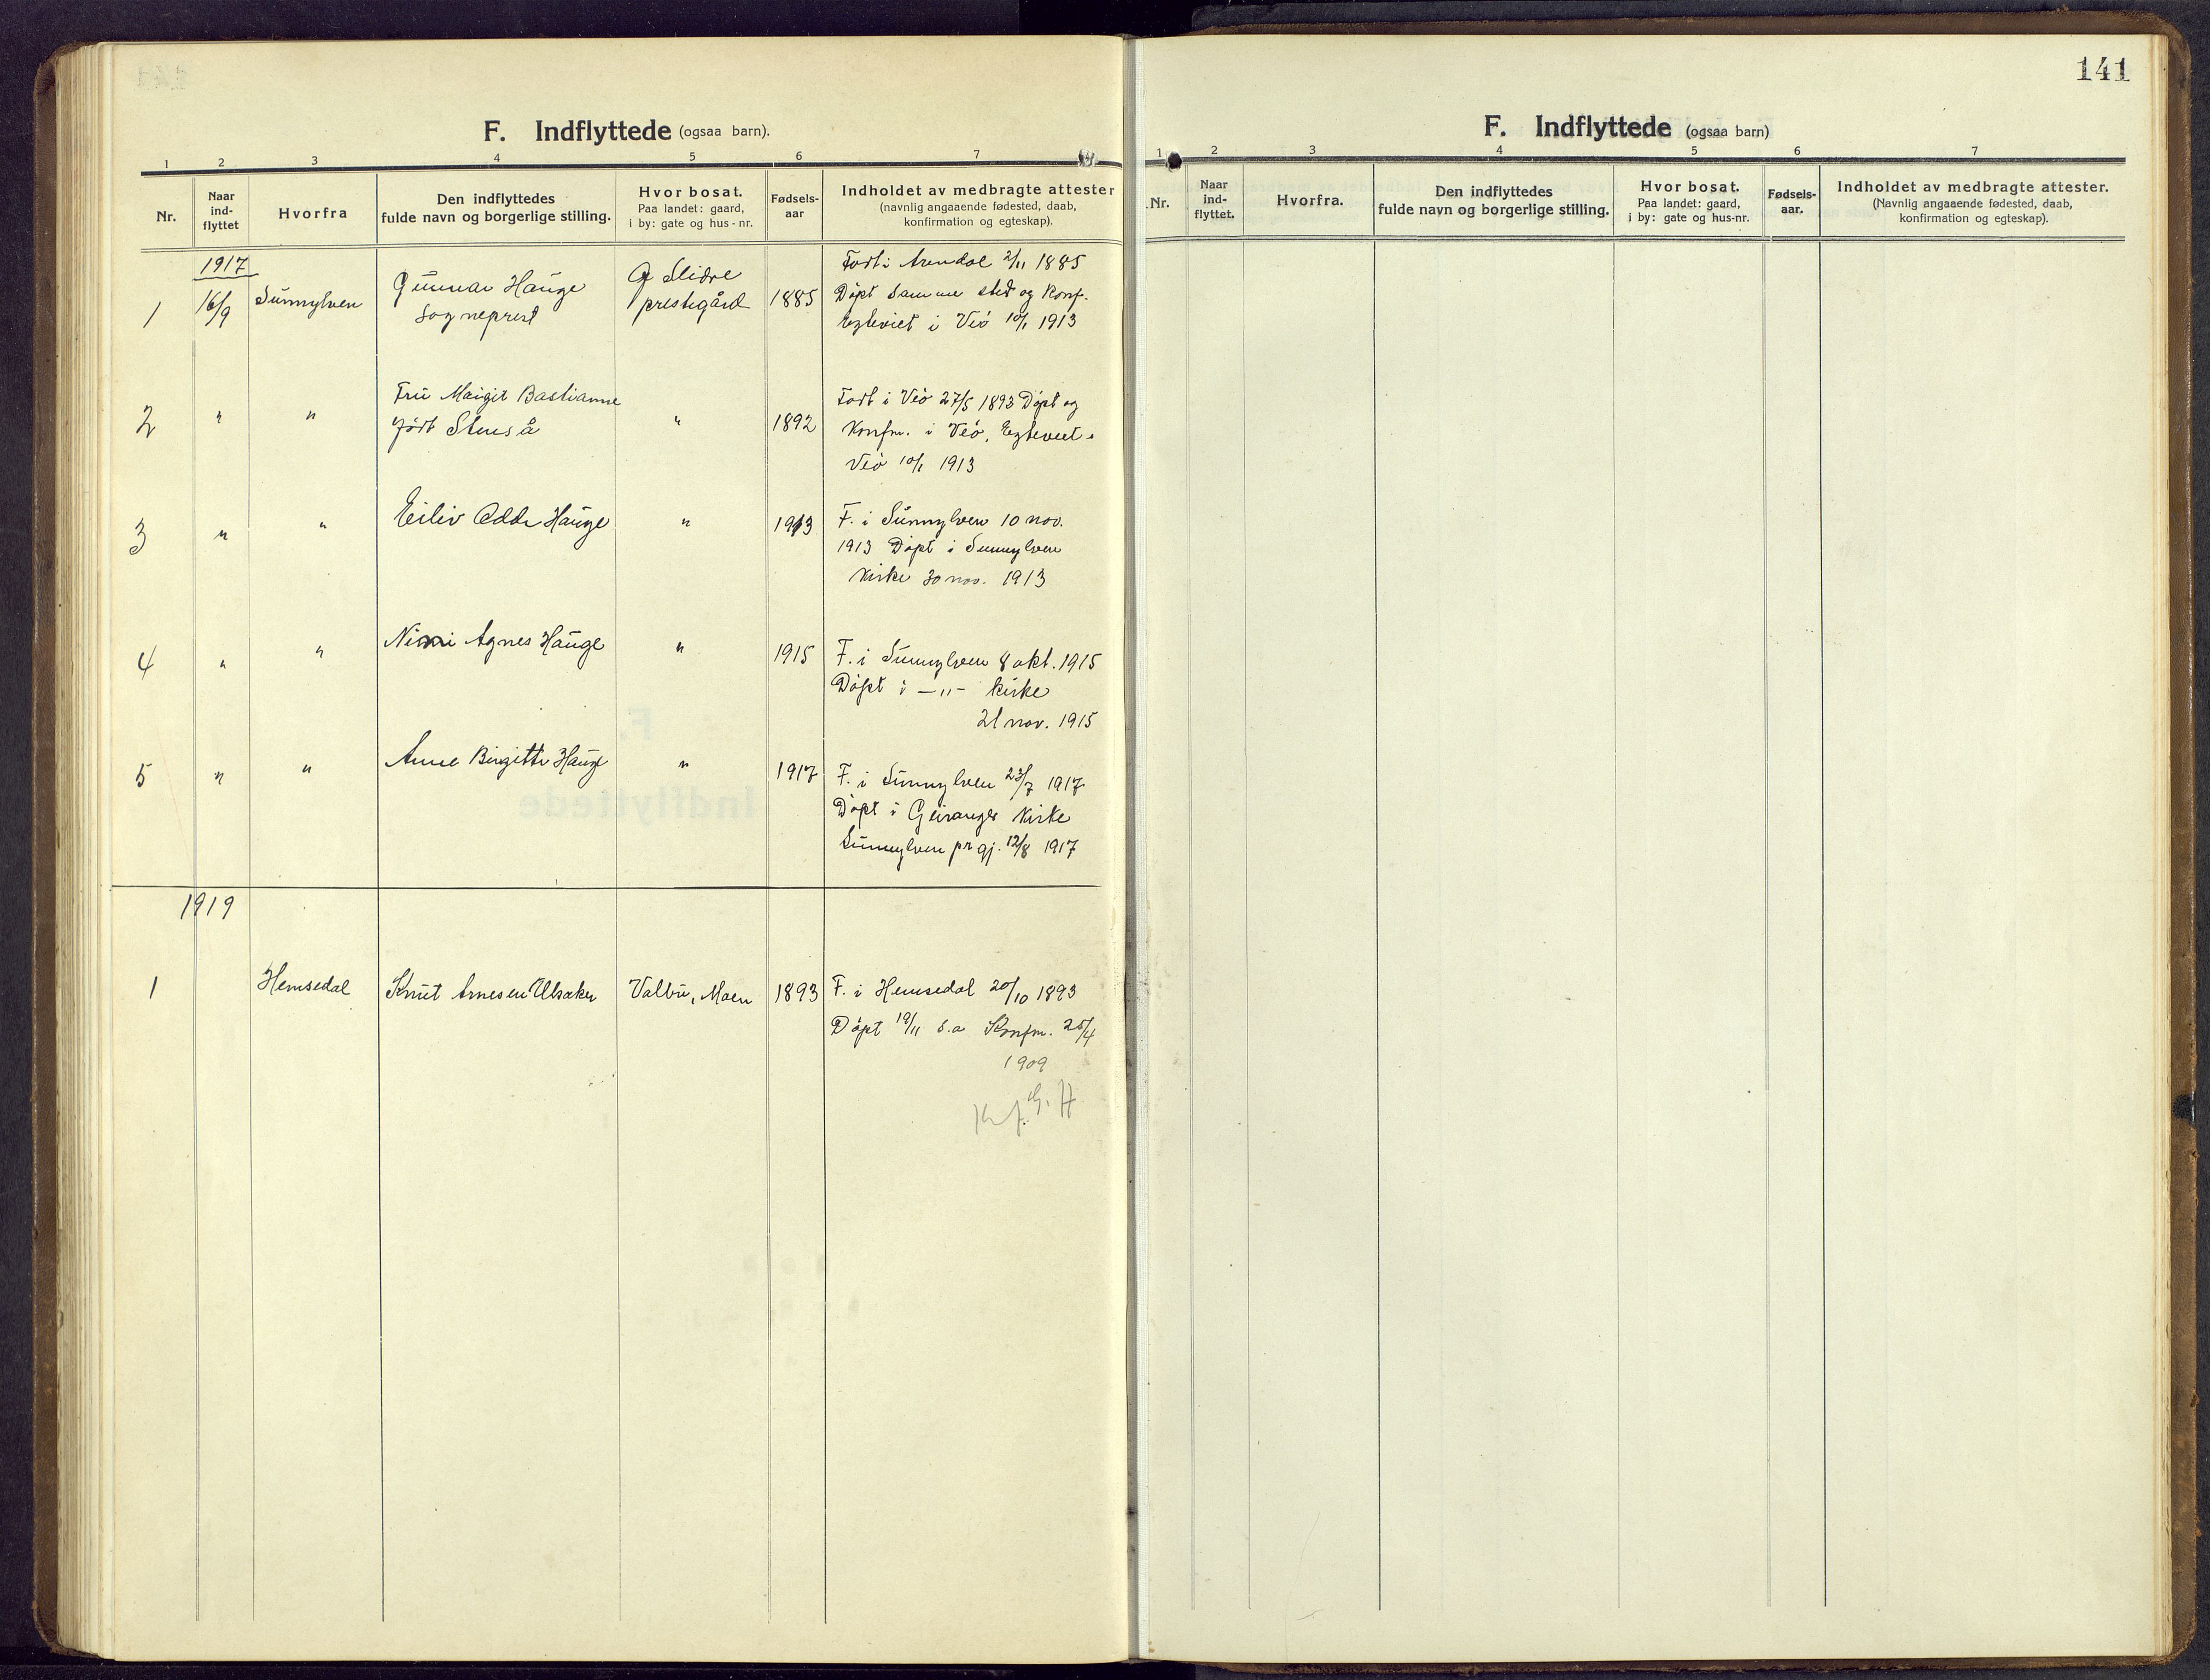 F. Indflyttede (ogsaa barn).
1 2 3 4 5 6 7
Nr. Naar ind-flyttet Hvorfra Den indflyttedes fulde navn og borgerlige stilling. Hvor bosat. Paa landet: gaard, i by: gate og hus-nr. Fødsels-aar Indholdet av medbragte attester (navnlig angaaende fødested, daab, konfirmation og egteskap).
1917
1 16/9 Sunnylven Gunnar Hauge Sogneprest Slidre prestigård 1885 Født i Arendal 2/11 1885
Døpt samme sted og Konf.
Egteviet i Veø 10/1 1913
2 " " Fru Margit Bastianne født Stuså " 1892 Født i Veø 27/5 1893 Døpt og
Konfm. i Veø, Egteviet i
Veø 10/1 1913
3 " " Eiliv Odde Hauge " 1913 F. i Sunnylven 10 nov.
1913 Døpt i Sunnylven
Kirke 30 nov. 1913
4 " " Ninni Agnes Hauge " 1915 F. i Sunnylven 8 okt. 1915
Døpt i —"— kirke
21 nov. 1915
5 " " Anne Birgitte Hauge " 1917 F. i Sunnylven 23/7 1917
Døpt i Geiranger Kirke
Sunnylven prgj. 12/8 1917
1919
1 Hemsedal Knut Arnesen Ulsaker Valbu, Moen 1893 F. i Hemsedal 20/10 1893
Døpt 19/11 s.a Konfm. 25/4
1909
G. H
141
F. Indflyttede (ogsaa barn)
1 2 3 4 5 6 7
Nr. Naar ind-flyttet. Hvorfra. Den indflyttedes fulde navn og borgerlige stilling. Hvor bosat. Paa landet: gaard, i by: gate og hus-nr. Fødsels-aar. Indholdet av medbragte attester. (Navnlig angaaende fødested, daab, konfirmation og egteskap).